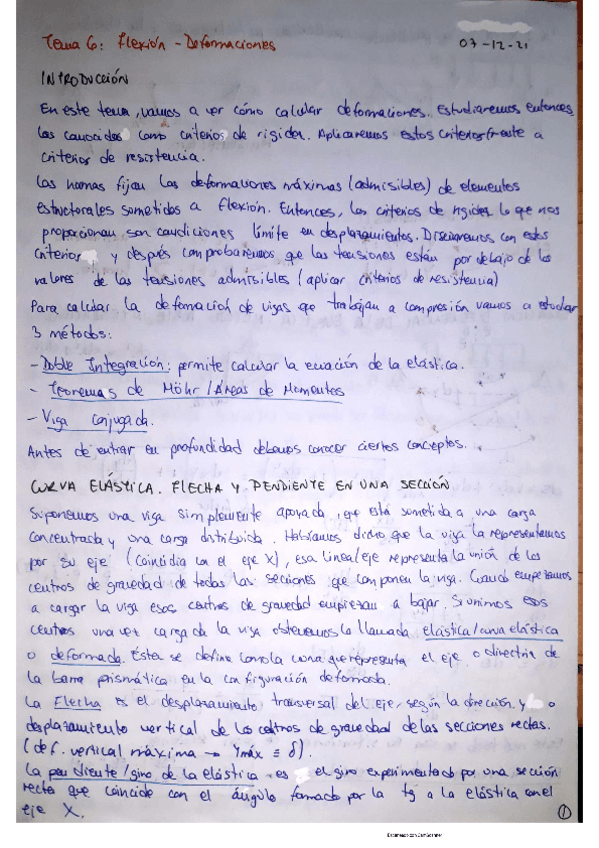 Tema 6: Flexión - Deformaciones
07-12-21
INTRODUCCIÓN
En este tema, vamos a ver cómo calcular deformaciones. Estudiaremos entonces
los conocidos como criterios de rigidez. Aplicaremos estos criterios frente a
criterios de resistencia.
Las normas fijan las deformaciones máximas (admisibles) de elementos
estructorales sometidos a flexión. Entonces, los criterios de rigidez lo que nos
proporcionan son condiciones límite en desplazamientos. Diseñaremos con estos
criterios y después comprobaremos que las tensiones están por debajo de los
valores de las tensiones admisibles (aplicar criterios de resistencia)
Para calcular la deformación de vigas que trabajan a compresión vamos a estudiar
3 métodos:
- Doble Integración: permite calcular la ecuación de la elástica.
- Teoremas de Möhr / Áreas de Momentos
- Viga Conjugada.
Antes de entrar en profundidad debemos conocer ciertos conceptos.
CURVA ELÁSTICA. FLECHA Y PENDIENTE EN UNA SECCIÓN
Suponemos una viga simplemente apoyada, que está sometida a una carga
concentrada y una carga distribuida. Habíamos dicho que la viga la representemos
por su eje (coincidía con el eje X), esa línea/eje representa la unión de los
centros de gravedad de todas las secciones que componen la viga. Cuando empezamos
a cargar la viga esos centros de gravedad empiezan a bajar. Si unimos esos
centros una vez cargada la viga obtenemos la llamada elástica/curva elástica
o deformada. Ésta se define como la curva que representa el eje o directriz de
la barra prismática en la configuración deformada.
La Flecha es el desplazamiento transversal del eje, según la dirección y o
desplazamiento vertical de los centros de gravedad de las secciones rectas.
(def. vertical máxima → Ymáx ≡ δ).
La pendiente/giro de la elástica es el giro experimentado por una sección
recta que coincide con el ángulo formado por la tg a la elástica con el
eje X.
1
Escaneado con CamScanner